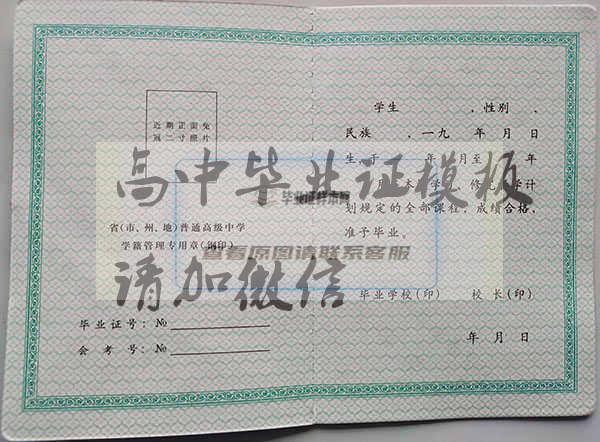 近期正面免
冠二寸照片
省(市、州、地)普通高级中学
学籍管理专用章(钢印)
毕业证号：№
会考号：№
学生 ，性别 ，
民族 ，一九 年 月 日
生，于 年 月至 年
月 本 学 ，修 学计
划规定的全部课程，成绩合格，
准予毕业。
毕业学校(印) 校长(印)
年 月 日
高中毕业证模板
毕业证样本网
查看原图请联系客服
请加微信